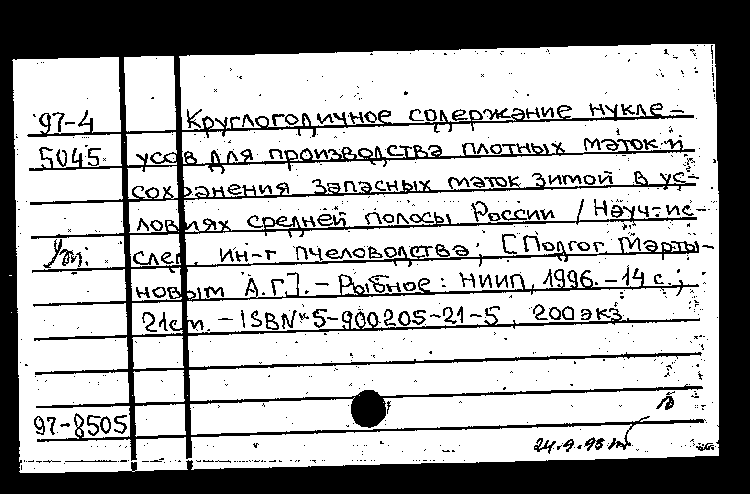 97-4 Круглогодичное содержание нукле-
5045 усов для производства плотных маток и
сохранения запасных маток зимой в ус-
ловиях средней полосы России / Науч-ис-
след. ин-т пчеловодства; [Подгот. Марты-
новым А.Г.]. - Рыбное: НИИП, 1996. - 14 с.;
21см. - ISBN 5-900205-21-5, 200 экз.
97-8505